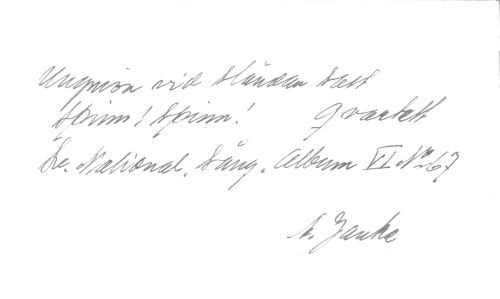 Ungmön vid sländan satt
Spinn! Spinn! Qvartett
Se. National. Sång. Album VI No 67
A. Janke